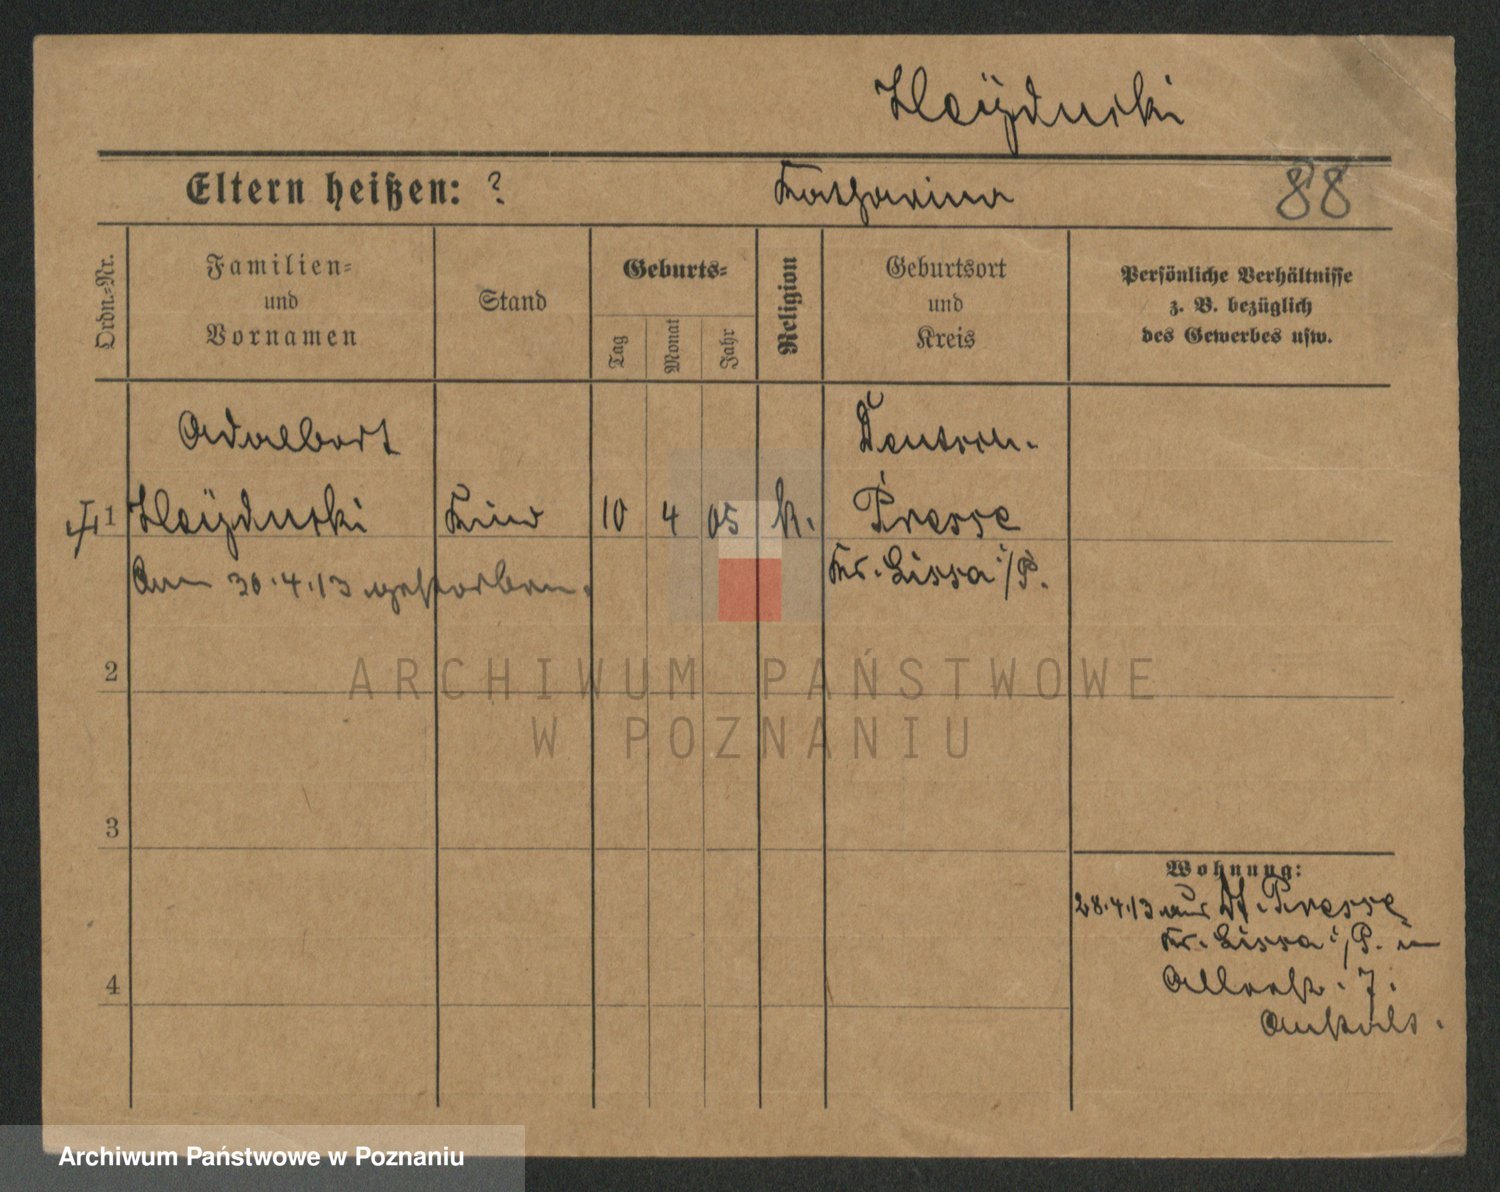 Heÿducki
Eltern heißen: ?
Katharina
88
Ordn.-Nr.
Familien-
und
Vornamen
Stand
Geburts-
Tag
Monat
Jahr
Religion
Geburtsort
und
Kreis
Persönliche Verhältnisse
z. B. bezüglich
des Gewerbes usw.
Adalbert
1
Kind
10
4
05
k.
Deutsch.
Presse
Kr. Lissa i/P.
Am 30.4.13 gestorben.
2
3
4
Wohnung:
28.4.13 aus Dt. Presse
Kr. Lissa i/P. in
7.
Anstalt.
ARCHIWUM PAŃSTWOWE
W POZNANIU
Archiwum Państwowe w Poznaniu